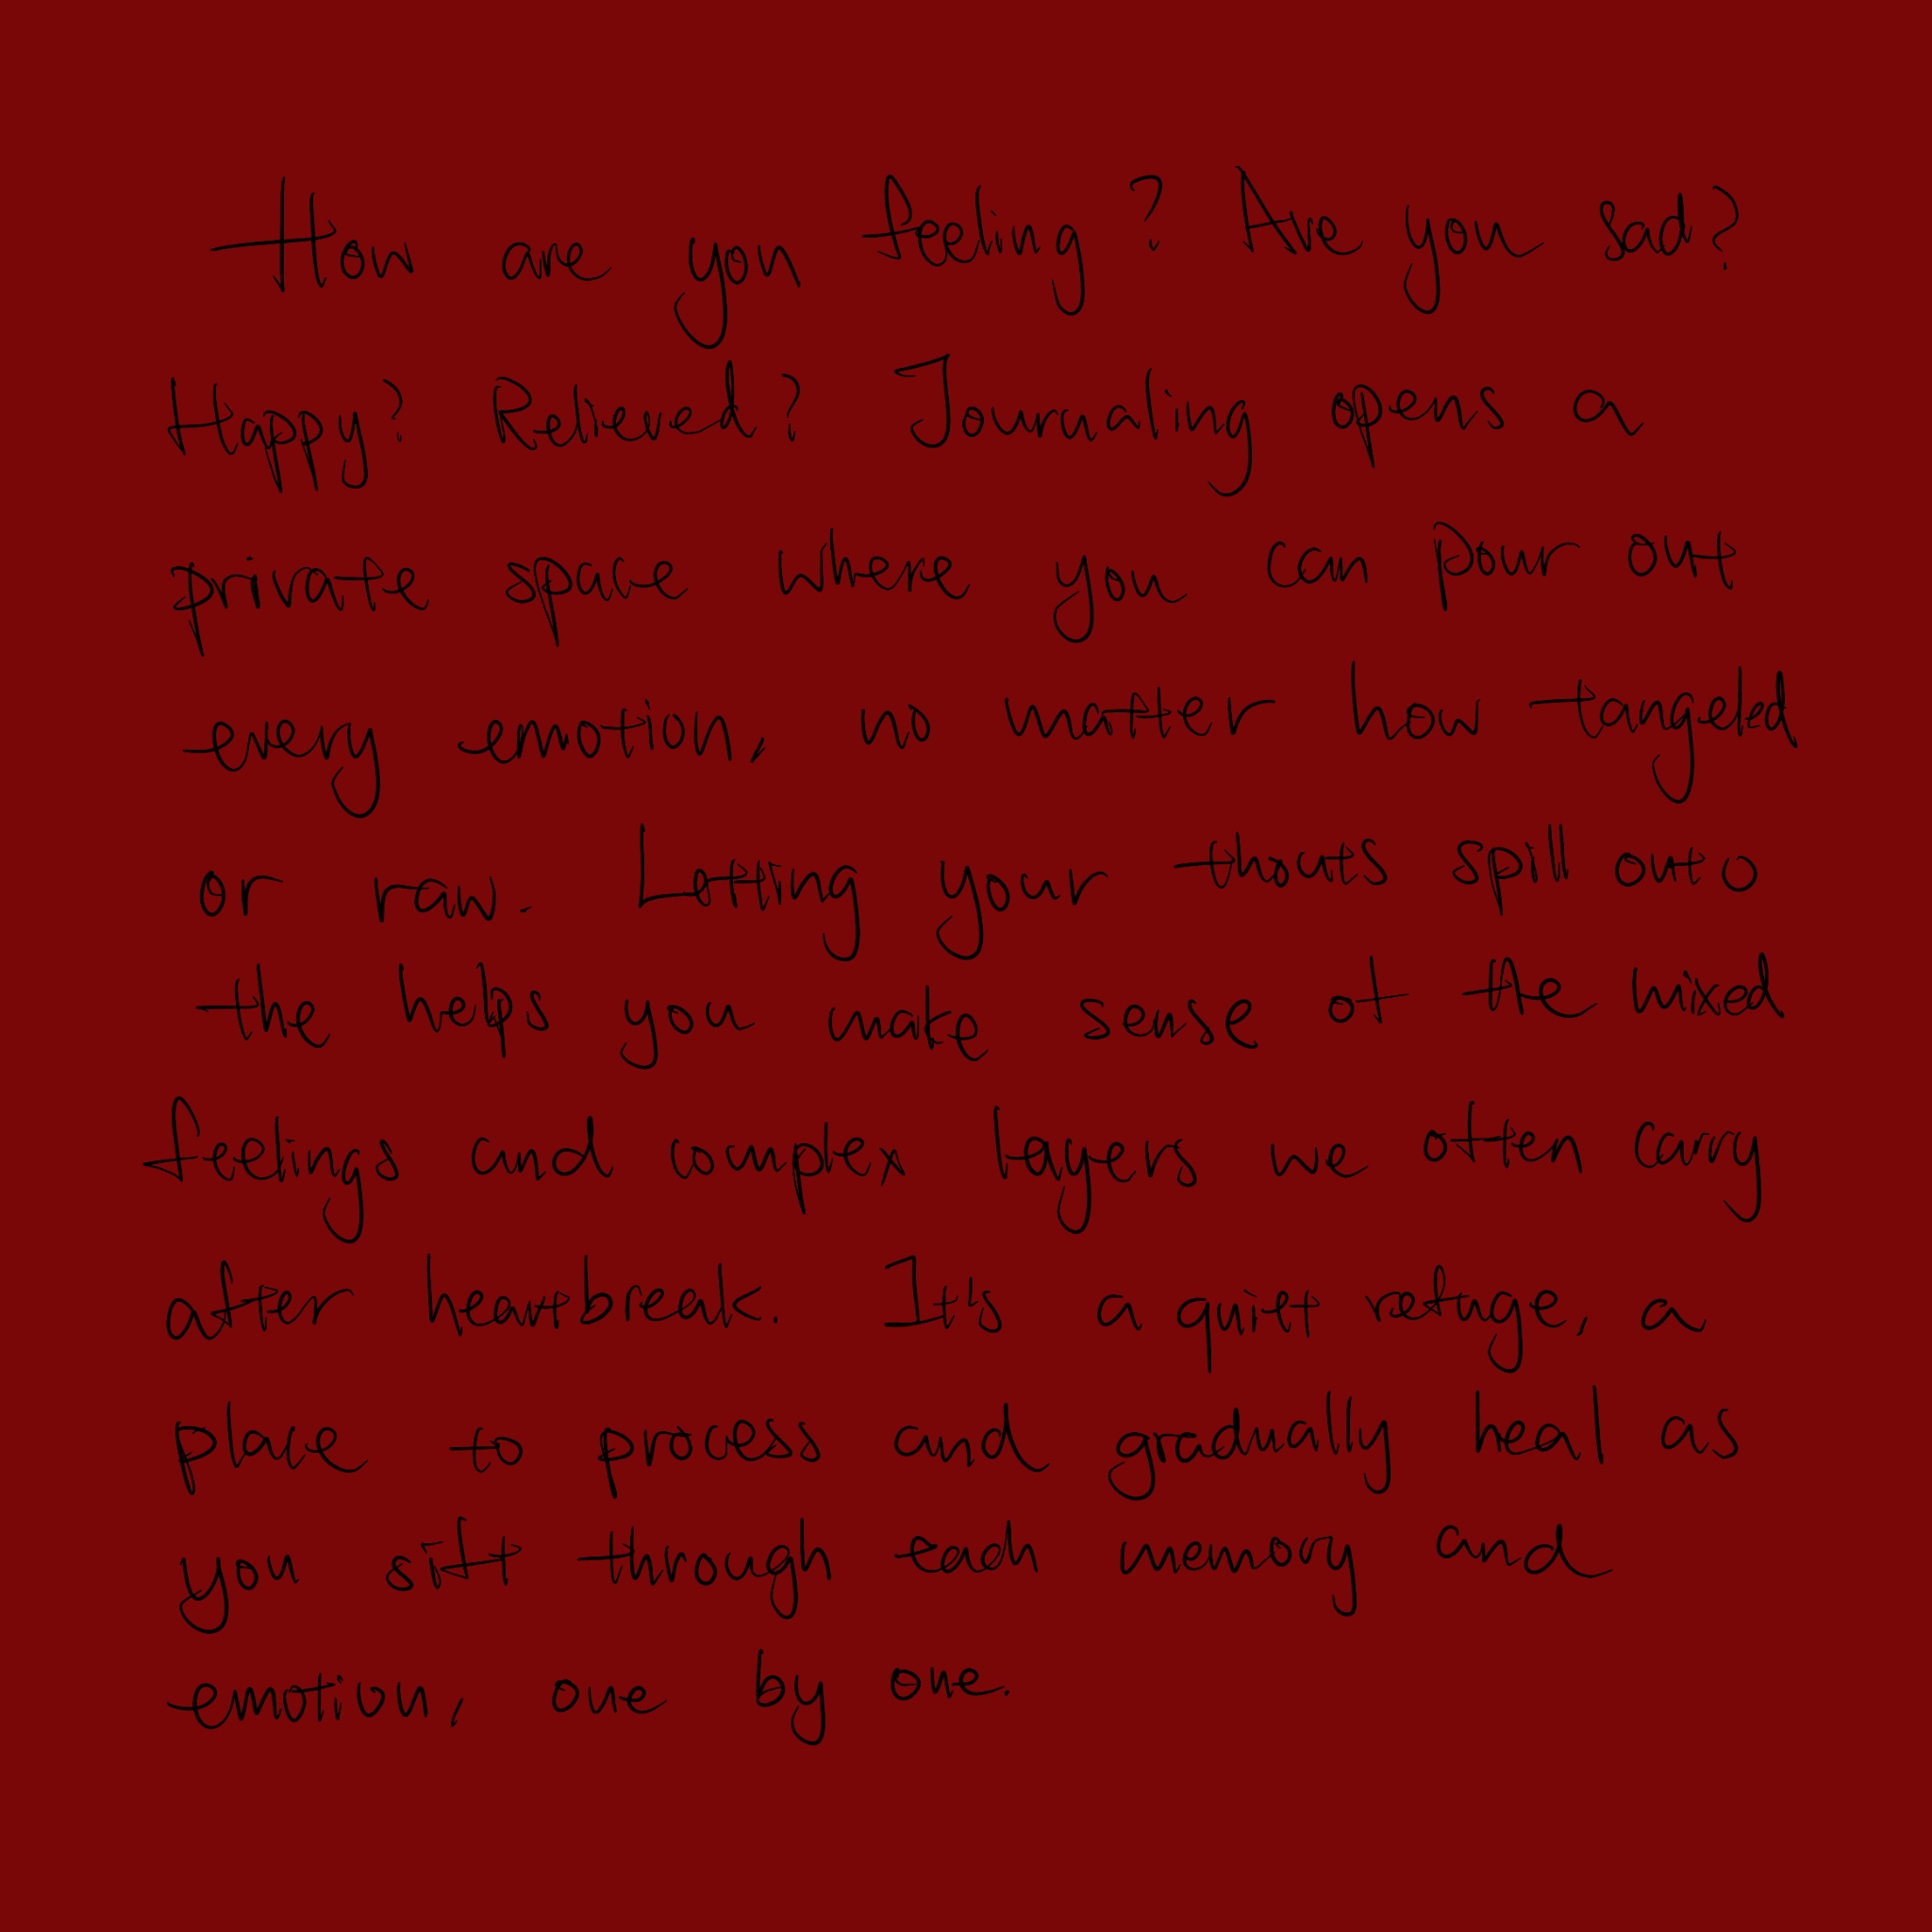 How are you feeling? Are you sad?
Happy? Relieved? Journaling opens a
private space where you can pour out
every emotion, no matter how tangeled
or raw. Letting your thouts spill onto
the helps you make sense of the mixed
feelings and complex layers we often carry
after heartbreak. It's a quiet refuge, a
place to process and gradually heal as
you sift through each memory and
emotion, one by one.